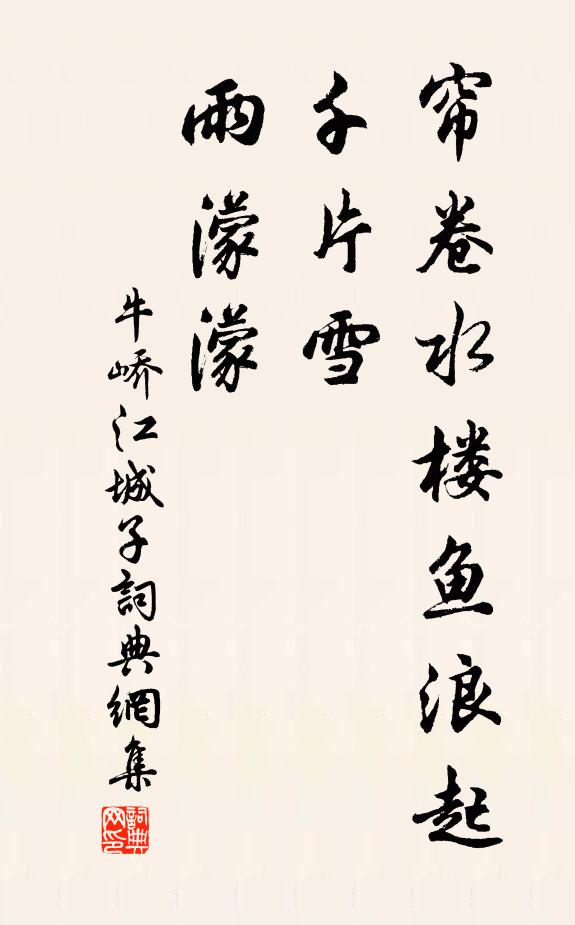 帘卷水楼鱼浪起
千片雪
雨濛濛
牛峤江城子詞典網集
詞典網印